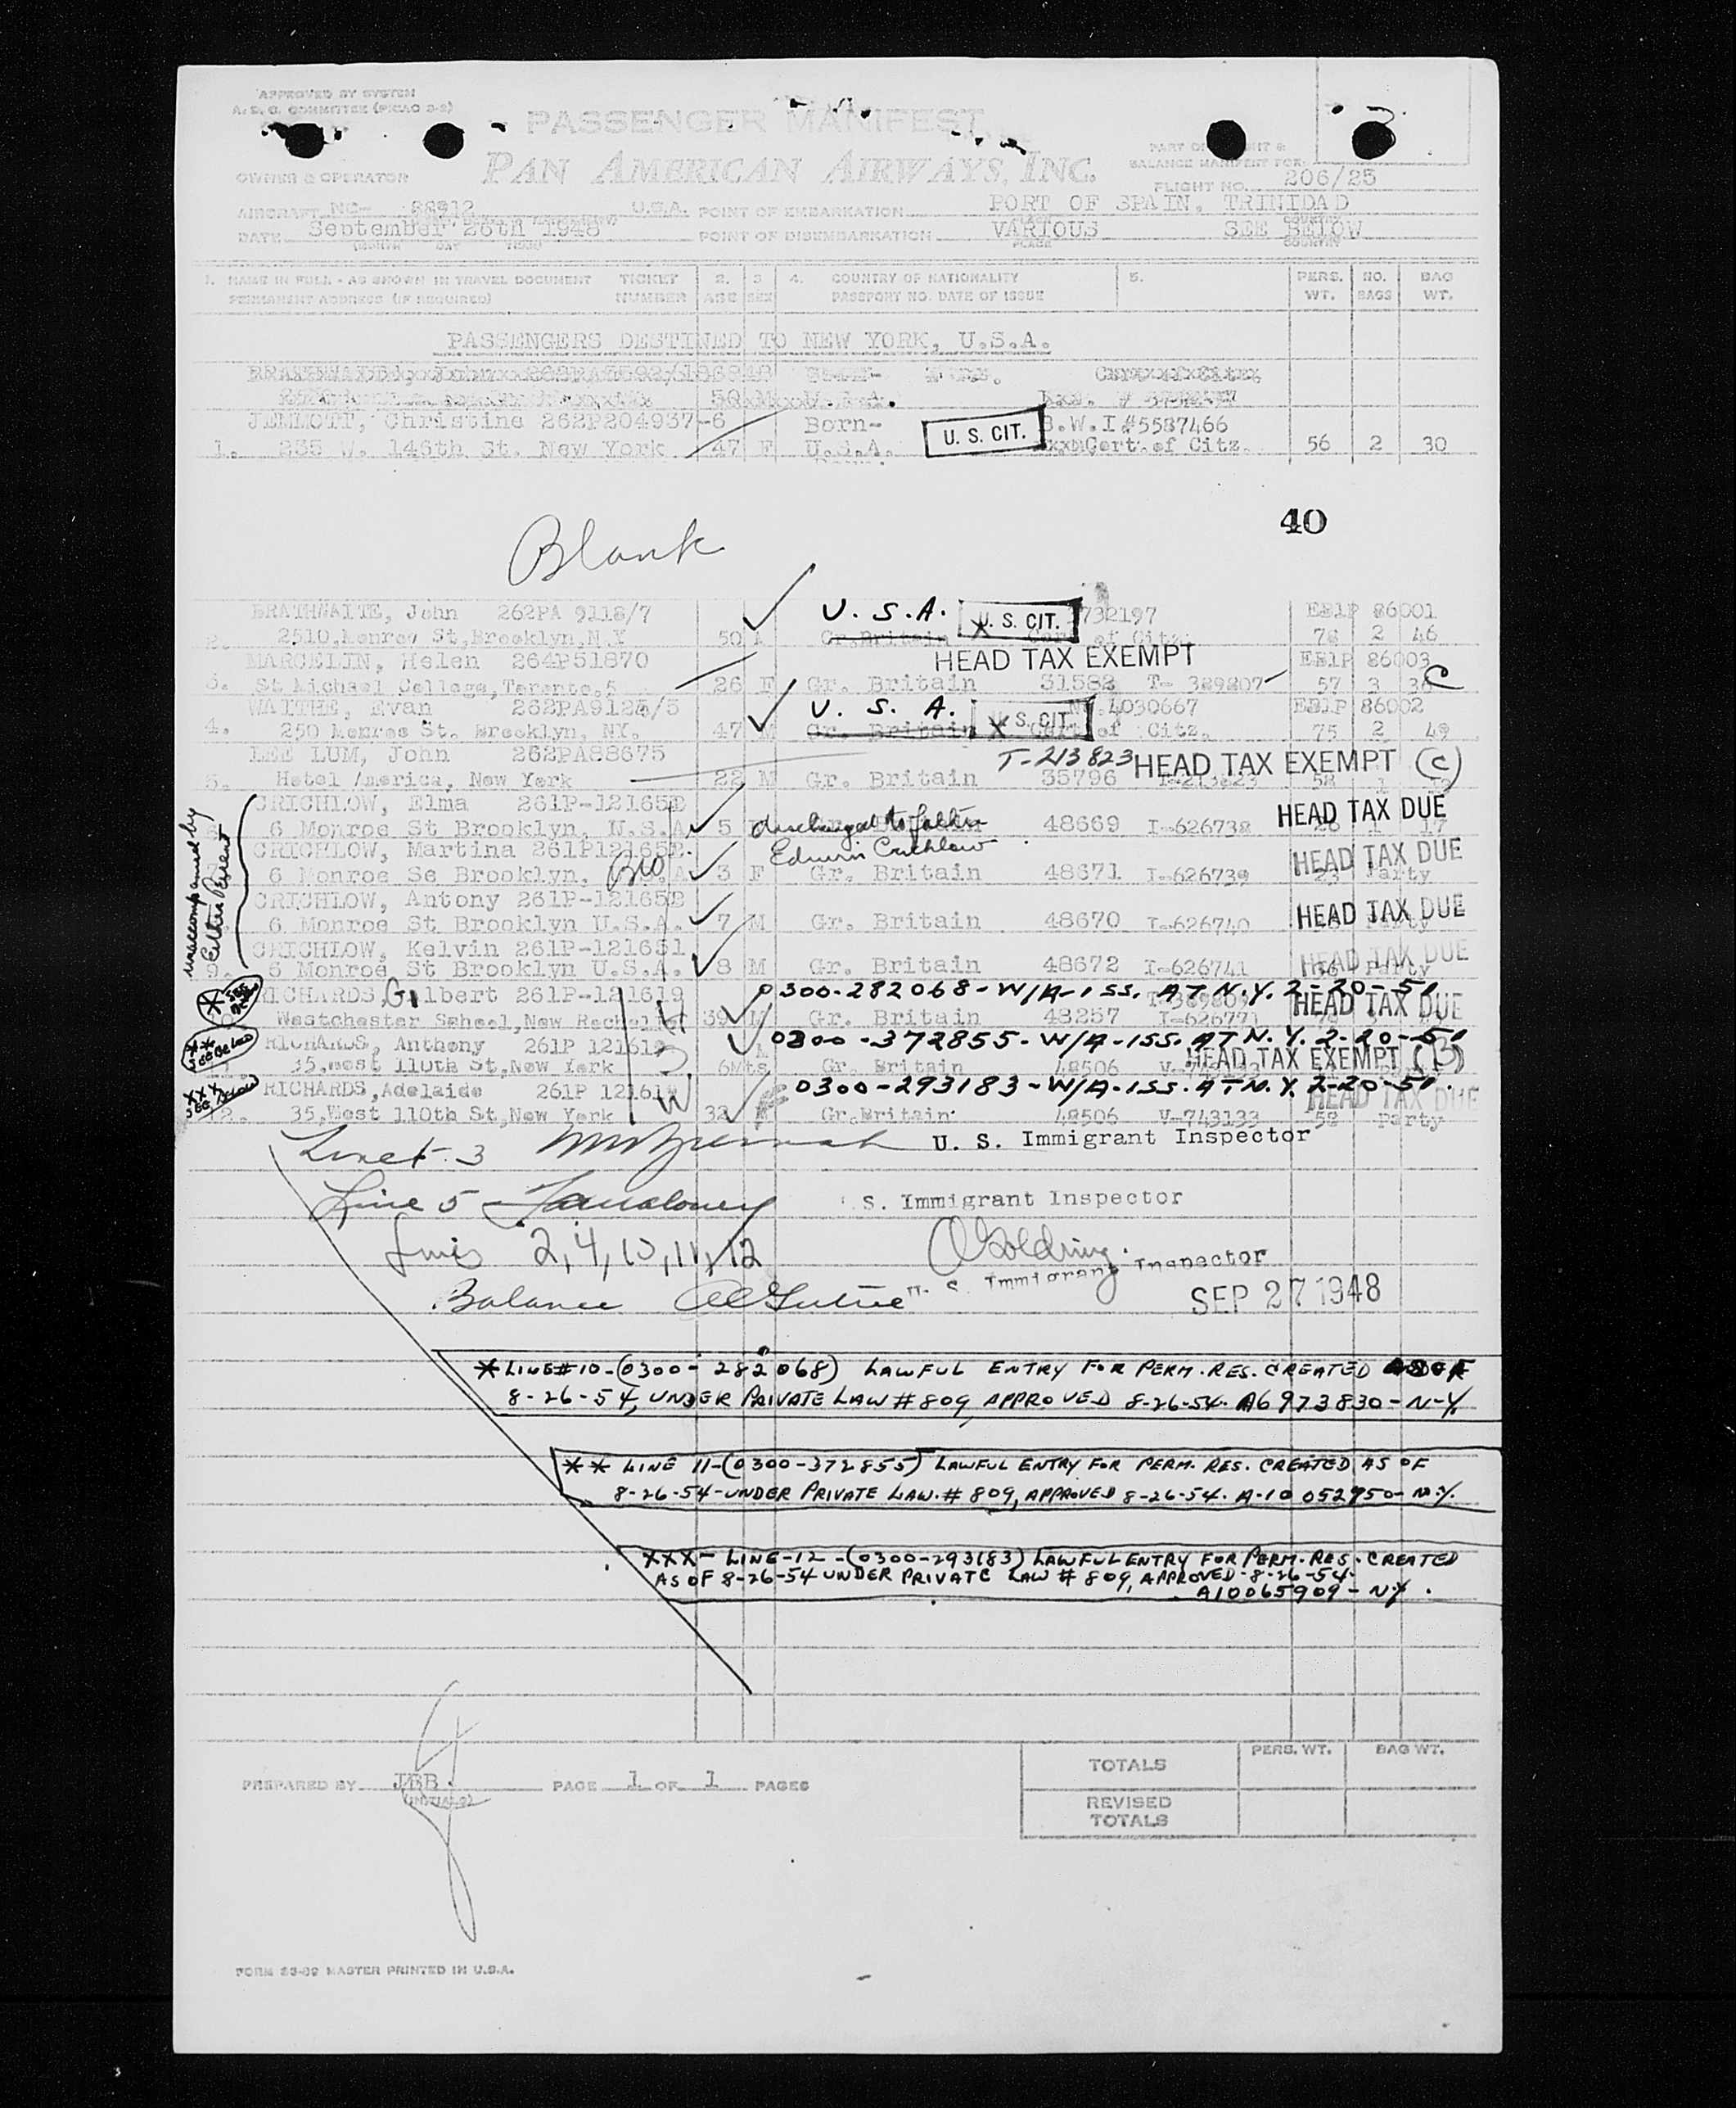 APPROVED BY SYSTEM
A.D.C. COMMITTEE (PICAO 3-2)
PASSENGER MANIFEST
PAN AMERICAN AIRWAYS, INC.
OWNER & OPERATOR
BALANCE MANIFEST FOR:
FLIGHT NO. 206/25
AIRCRAFT NC- 88912 U.S.A. POINT OF EMBARKATION PORT OF SPAIN, TRINIDAD
DATE September 26th 1948 POINT OF DISEMBARKATION VARIOUS SEE BELOW
PLACE COUNTRY
1. NAME IN FULL - AS SHOWN IN TRAVEL DOCUMENT TICKET 2. 3 4. COUNTRY OF NATIONALITY 5. PERS. NO. BAG
PERMANENT ADDRESS (IF REQUIRED) NUMBER AGE SEX PASSPORT NO. DATE OF ISSUE WT. BAGS WT.
PASSENGERS DESTINED TO NEW YORK, U.S.A.
JEMMOTT, Christine 262P204937-6 Born- B.W.I #5587466
1. 235 W. 146th St. New York 47 F U.S.A. U. S. CIT. Cert. of Citz. 56 2 30
40
Blank
BRATHWAITE, John 262PA 9118/7 U.S.A. U. S. CIT. 732197 EBlP 86001
2. 2510, Monroe St, Brooklyn, N.Y 50 Gr. Britain of Citz. 78 2 46
MARCELIN, Helen 264P51870 HEAD TAX EXEMPT EBlP 86003
3. St Michael College, Toronto, 5 26 F Gr. Britain 31583 T- 389807 57 3 36 C
WAITHE, Evan 262PA9124/5 U. S. A. U. S. CIT. No. 4030667 EBlP 86002
4. 250 Monroe St. Brooklyn, NY. 47 M Gr. Britain Cert of Citz. 75 2 49
LEE LUM, John 262PA88675 T-213823 HEAD TAX EXEMPT (C)
5. Hotel America, New York 22 M Gr. Britain 35796 T-213823 58 1
CRICHLOW, Elma 261P-12165 HEAD TAX DUE
6 Monroe St Brooklyn, U.S.A 5 discharged to father 48669 I-626738 17
CRICHLOW, Martina 261P12165 Edwin Crichlow HEAD TAX DUE
6 Monroe Se Brooklyn, 3 F Gr. Britain 48671 I-626739 23 Party
CRICHLOW, Antony 261P-12165 HEAD TAX DUE
6 Monroe St Brooklyn U.S.A. 7 M Gr. Britain 48670 I-626740 Party
CRICHLOW, Kelvin 261P-121651 HEAD TAX DUE
9. 6 Monroe St Brooklyn U.S.A. 8 M Gr. Britain 48672 I-626741 Party
unaccompanied by
Either Parent
RICHARDS, Gilbert 261P-121619 0300-282068-W/A-ISS. AT N.Y. 2-20-51
10. Westchester School, New Rochelle 39 M Gr. Britain 48257 I-626771 HEAD TAX DUE
RICHARDS, Anthony 261P 121619 0300-372855-W/A-ISS. AT N.Y. 2-20-51
35, West 110th St, New York 6Mts M Gr. Britain 48506 HEAD TAX EXEMPT (B)
RICHARDS, Adelaide 261P 12161 0300-293183-W/A-ISS. AT N.Y. 2-20-51.
12. 35, West 110th St, New York 32 F Gr. Britain 48506 V-743133 HEAD TAX DUE 58 Party
3 U. S. Immigrant Inspector
Line 5 S. Immigrant Inspector
Lines 2, 4, 10, 11, 12 Goldring
U. S. Immigrant Inspector
Balance SEP 27 1948
* LINE #10-(0300-282068) LAWFUL ENTRY FOR PERM. RES. CREATED AS OF
8-26-54, UNDER PRIVATE LAW # 809, APPROVED 8-26-54. A6973830-N-Y.
** LINE 11-(0300-372855) LAWFUL ENTRY FOR PERM. RES. CREATED AS OF
8-26-54-UNDER PRIVATE LAW. # 809, APPROVED 8-26-54. A-10 052950-N.Y.
XXX- LINE-12-(0300-293183) LAWFUL ENTRY FOR PERM. RES. CREATED
AS OF 8-26-54 UNDER PRIVATE LAW # 809, APPROVED-8-26-54.
A10065909-NY.
PREPARED BY JBB. PAGE 1 OF 1 PAGES
(INITIALS)
PERS. WT. BAG WT.
TOTALS
REVISED
TOTALS
FORM 23-09 MASTER PRINTED IN U.S.A.